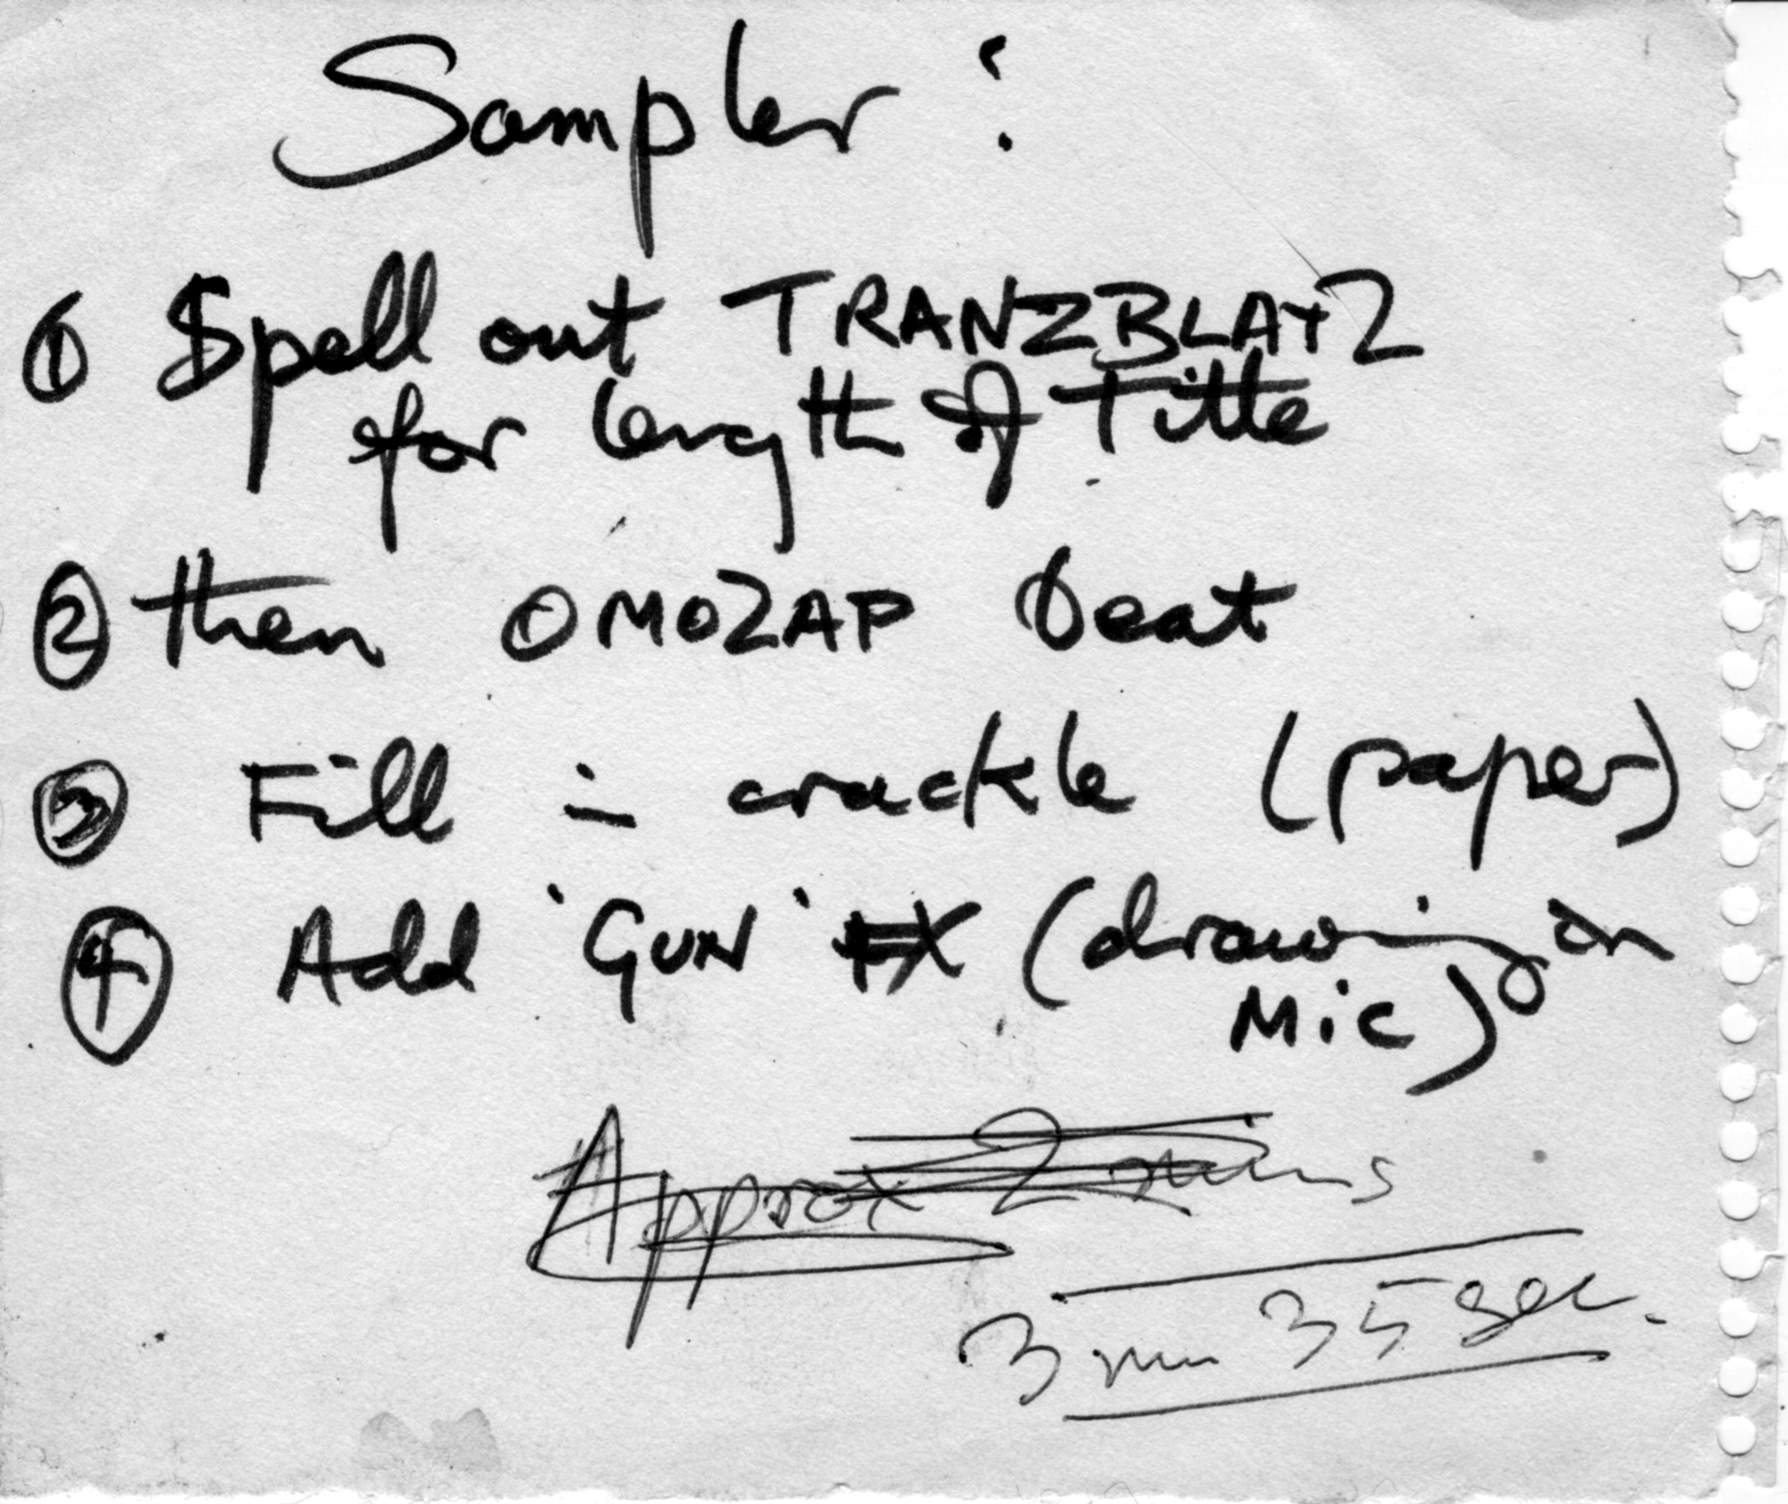 Sampler :
① Spell out TRANZBLATZ
for length of Title
② then OMOZAP beat
③ Fill in crackle (paper)
④ Add 'GUN' FX (drawing on
Mic)
Approx 2 mins
3 min 35 sec.